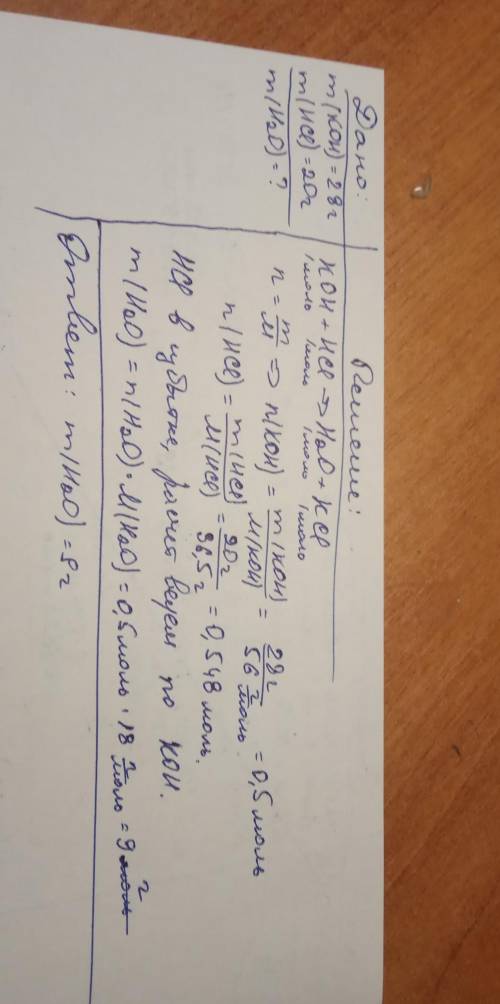 Дано:
m(KOH)=28г
m(HCl)=20г
m(H2O)=?
Решение:
KOH + HCl → H2O + KCl
1моль 1моль 1моль 1моль
n = m/M => n(KOH) = m(KOH)/M(KOH) = 28г/56 г/моль = 0,5 моль
n(HCl) = m(HCl)/M(HCl) = 20г/36,5г = 0,548 моль.
HCl в избытке, расчет ведем по KOH.
m(H2O) = n(H2O)·M(H2O) = 0,5 моль · 18 г/моль = 9 г
Ответ: m(H2O) = 9г